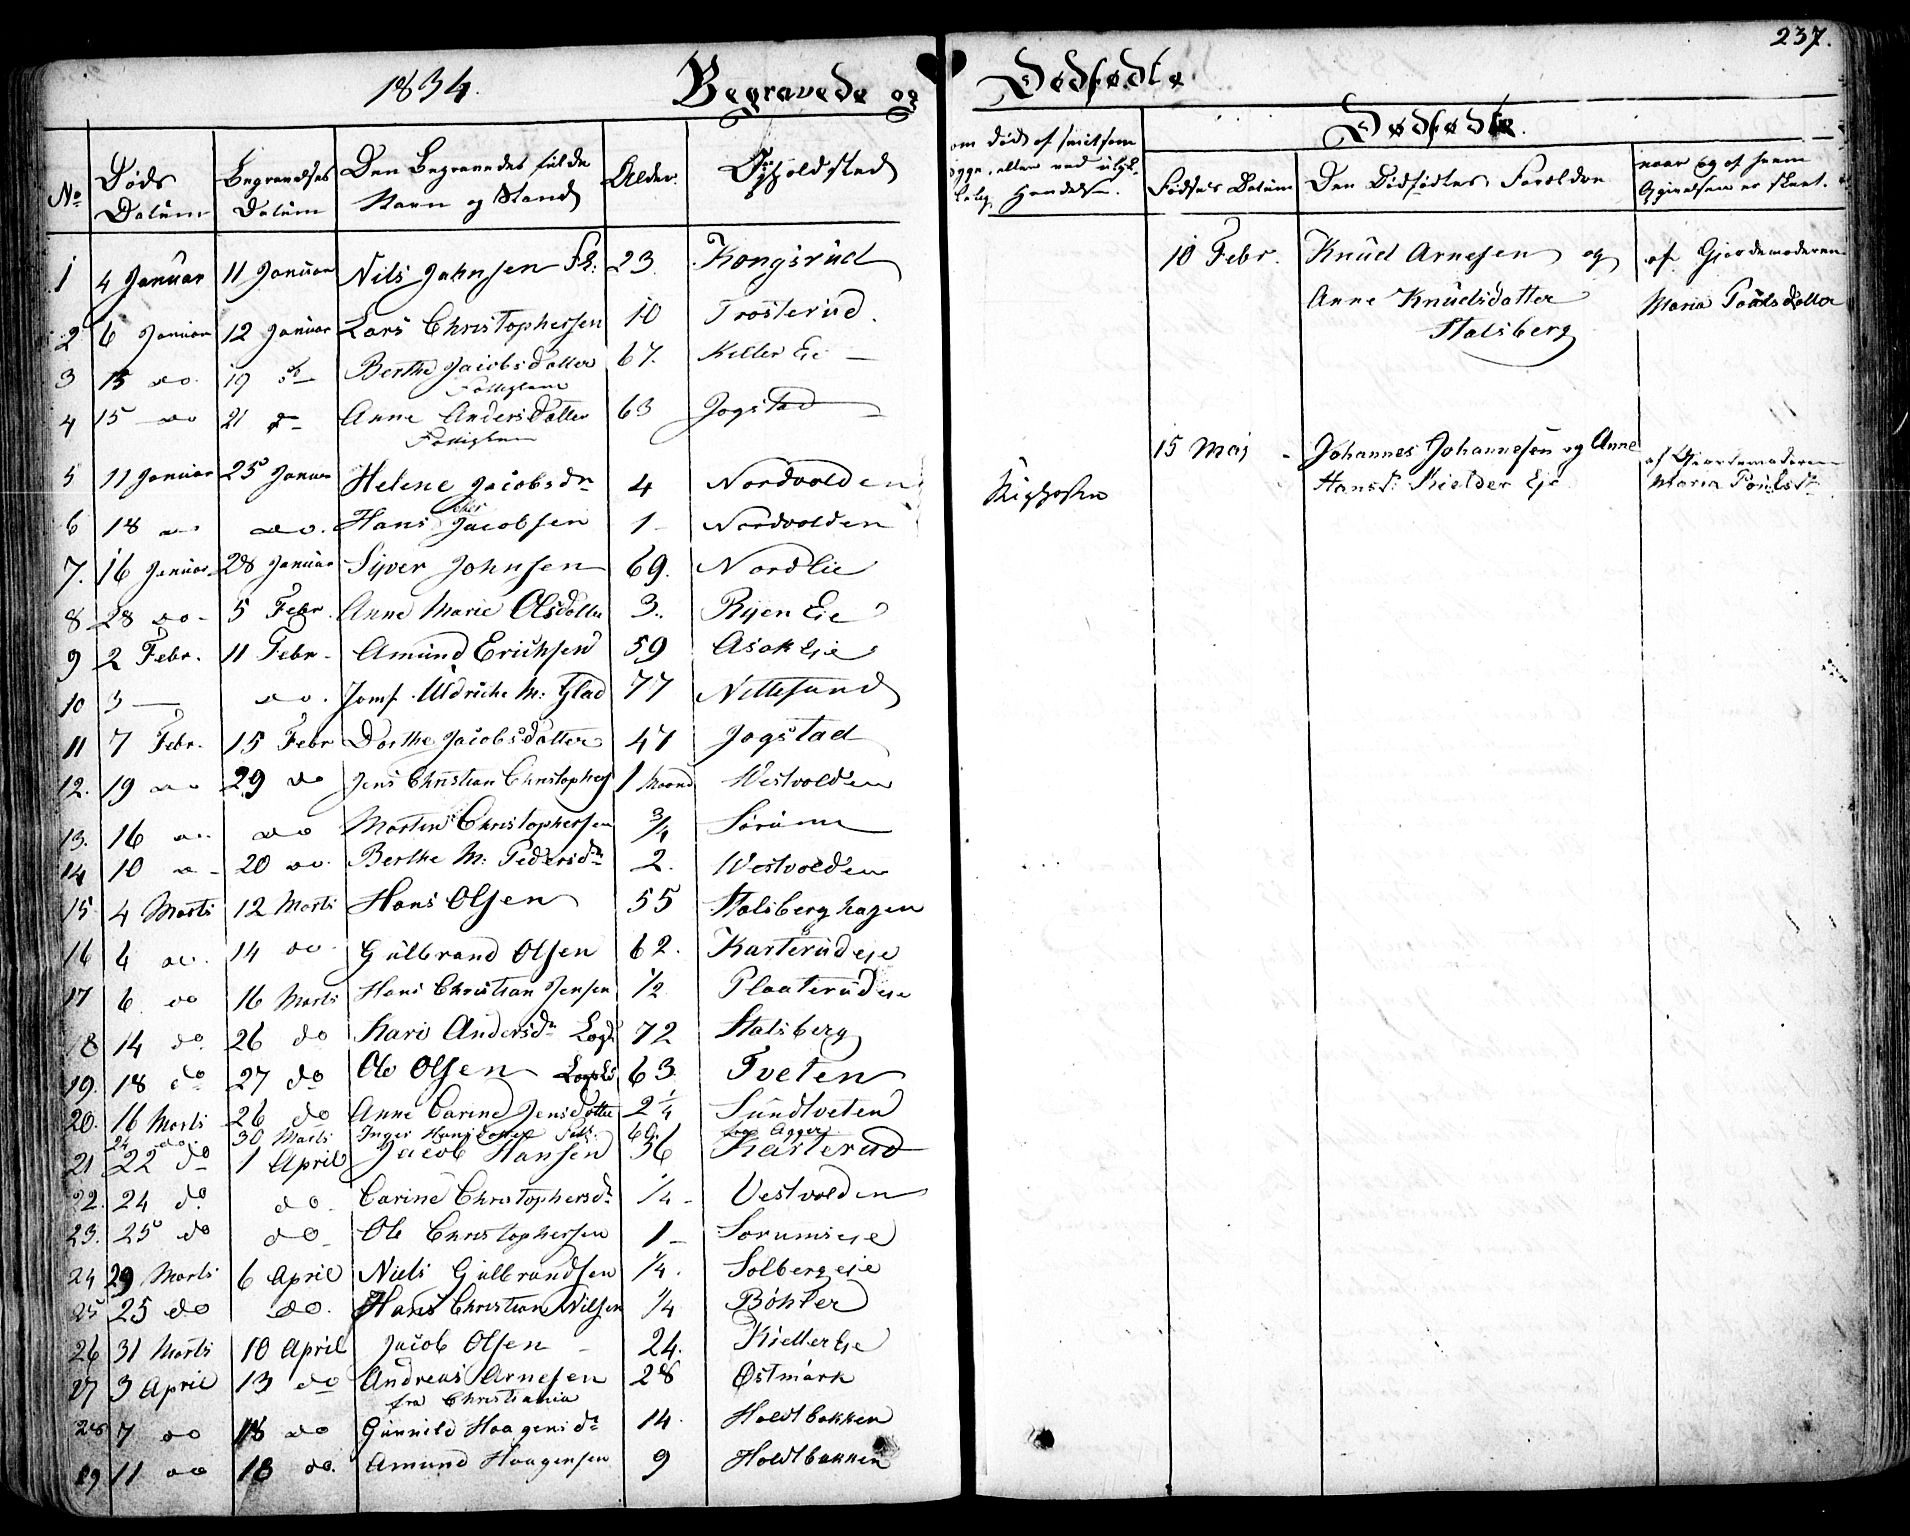 237.
1834. Begravede og Dødfødte
Dødfødte.
No Døds Datum Begravelses Datum Den Begravedes fulde Navn og Stand Alder. Opholdsted
om død af
eller ved
Hændelse.
Fødsels Datum Den Dødfødtes Forældre naar og af hvem
Opgivelsen er skeet.
1 4 Januar 11 Januar Nils Jahnsen 23 Kongsrud
2 6 Januar 12 Januar Lars Christophersen 10 Trosterud.
3 15 do. 19 Berthe Jacobsdatter 67. Keller Eie
Fattiglem
4 15 do 21 Anne Andersdatter 63 Jogstad
Fattiglem
5 11 Januar 25 Januar Helene Jacobsdr 4 Nordvolden Kighosten
6 18 do do. Hans Jacobsen 1 Nordvolden
7. 16 Januar 28 Januar Syver Johnsen 69. Nordlie
8 28 do 5 Febr. Anne Marie Olsdatter 3. Ryen Eie
9 2 Febr. 11 Febr Amund Erichsen 59 Asak Eie
10 3 — do. Jomf. Uldriche M: Glad 77 Nittesund
11 7 Febr. 15 Febr Dorthe Jacobsdatter 47 Jogstad
12. 19 do 29 do Jens Christian Christophers 1 Maaned Westvolden
13. 16 do do Morten Christophersen 3/4 Sörum
14 10 20 do Berthe M: Pedersdr 2. Westvolden
15 4 Marts 12 Marts Hans Olsen 55 Stalsberghagen
16 6 do. 14 do Gulbrand Olsen 62. Karterudeje
17 6 do 16 Marts Hans Christian Jensen 1/2 Plaaterudeje
18 14 do. 26 do Kari Andersdr Logs 72 Stalsberg
19. 18 do 27 do Ole Olsen 63. Tveten
20. 16 Marts 26 do Anne Carine Jensdatter 2 1/4 Sundtveten
24 do. 30 Marts Inger Hansdatter 60. Agger
21 22 do 1 April Jacob Hansen 36 Kasterud
22. 24 do do. Carine Christophersdr 1/4 Vestvolden
23. 25 do do Ole Christophersen 1 Sorumseje
24 29 Marts 6 April Niels Gulbrandsen 1/4. Solbergeie
25 25 do do. Hans Christian Nilsen 1/4 Böhler
26 31 Marts 10 April Jacob Olsen 24. Kieller Eje
27 3 April 13 do Andreas Arnesen 28 Østmark
fra Christiania
28 7 do 18 do Gunnild Haagensdr 14. Holdtbakken
29 11 do 18 do. Amund Haagensen 9 Holdtbakken
10 Febr. Knud Arnesen og af Gjordemoderen
Anne Knudsdatter Maria Poulsdatter
Stalsberg
15 Maj Johannes Johannesen og Anne af Gjordemoderen
Hansd. Kielder Eje Maria Poulsdr